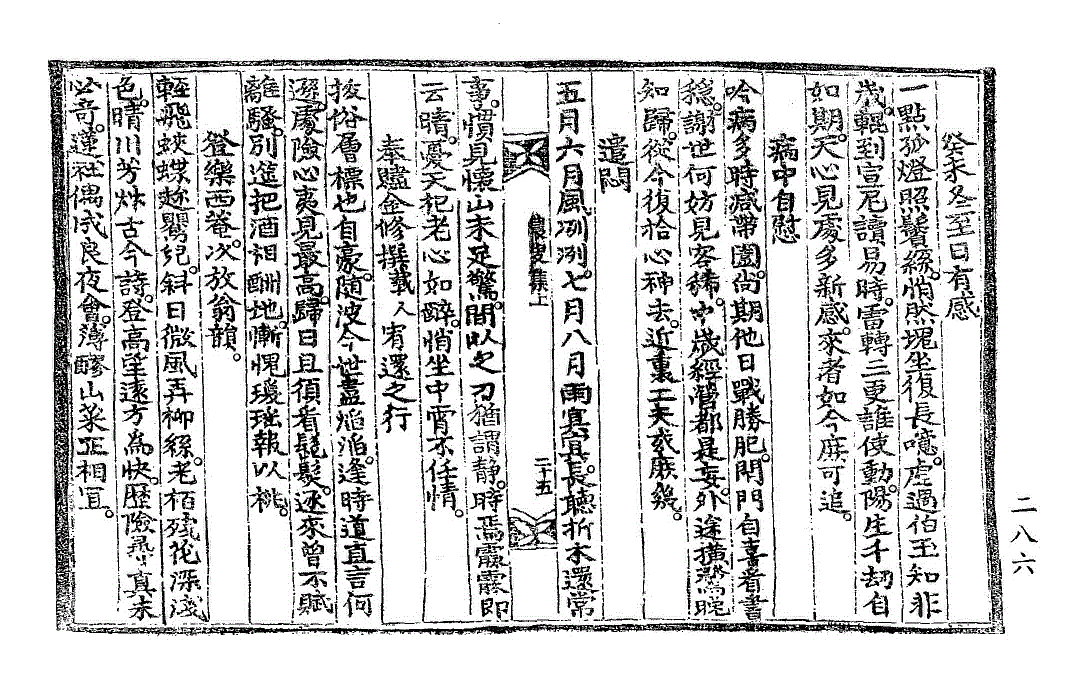 癸未冬至日有感
一點孤燈照鬢絲。悄然塊坐復長噫。虛過伯玉知非
歲。輥到宣尼讀易時。雷轉三更誰使動。陽生千劫自
如期。天心見處多新感。來者如今庶可追。
病中自慰
吟病多時减帶圍。尙期他日戰勝肥。閉門自喜看書
穩。謝世何妨見客稀。中歲經營都是妄。外途橫騖晩
知歸。從今復拾心神去。近裏工夫或庶幾。
遣悶
五月六月風冽冽。七月八月雨冥冥。長聽折木還常
事。慣見懷山未足驚。間以之刀猶謂靜。時焉霞霧即
云晴。憂天杞老心如醉。悄坐中宵不任情。
奉贐金修撰 載人 宥還之行
拔俗層標也自豪。隨波今世盡滔滔。逢時道直言何
遜。處險心夷見最高。歸日且須看鬚髮。逐來曾不賦
離騷。別筵把酒相酬地。慚愧瓊琚報以桃。
登樂西菴。次放翁韻。
輕飛蛺蝶趂鬟兒。斜日微風弄柳絲。老栢殘花深淺
色。晴川芳艸古今詩。登高望遠方爲快。歷險尋眞未
必奇。蓮社偶成良夜會。薄醪山菜正相宜。
集上
二十五
二八六